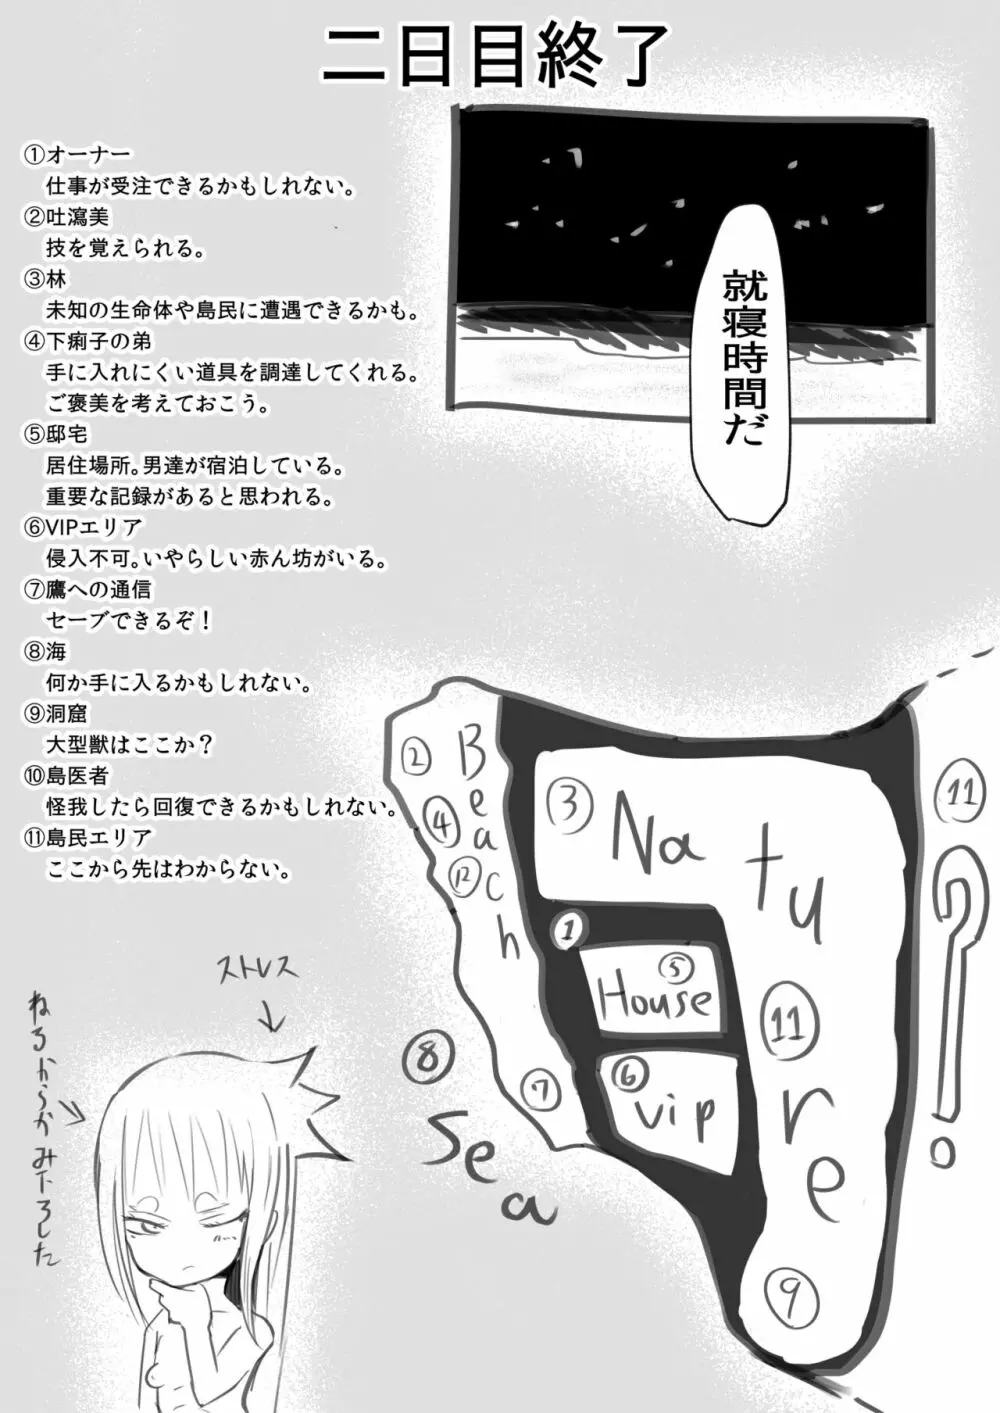 二日目終了
①オーナー
仕事が受注できるかもしれない。
②吐瀉美
技を覚えられる。
③林
未知の生命体や島民に遭遇できるかも。
④下痢子の弟
手に入れにくい道具を調達してくれる。
ご褒美を考えておこう。
⑤邸宅
居住場所。男達が宿泊している。
重要な記録があると思われる。
⑥VIPエリア
侵入不可。いやらしい赤ん坊がいる。
⑦鷹への通信
セーブできるぞ！
⑧海
何か手に入るかもしれない。
⑨洞窟
大型獣はここか？
⑩島医者
怪我したら回復できるかもしれない。
⑪島民エリア
ここから先はわからない。
就寝時間だ
Beach
②
④
⑫
⑦
③
Nature
⑪
⑨
①
⑤
House
⑥
vip
⑧
Sea
⑪
?
ストレス
ねるからかみ下ろした